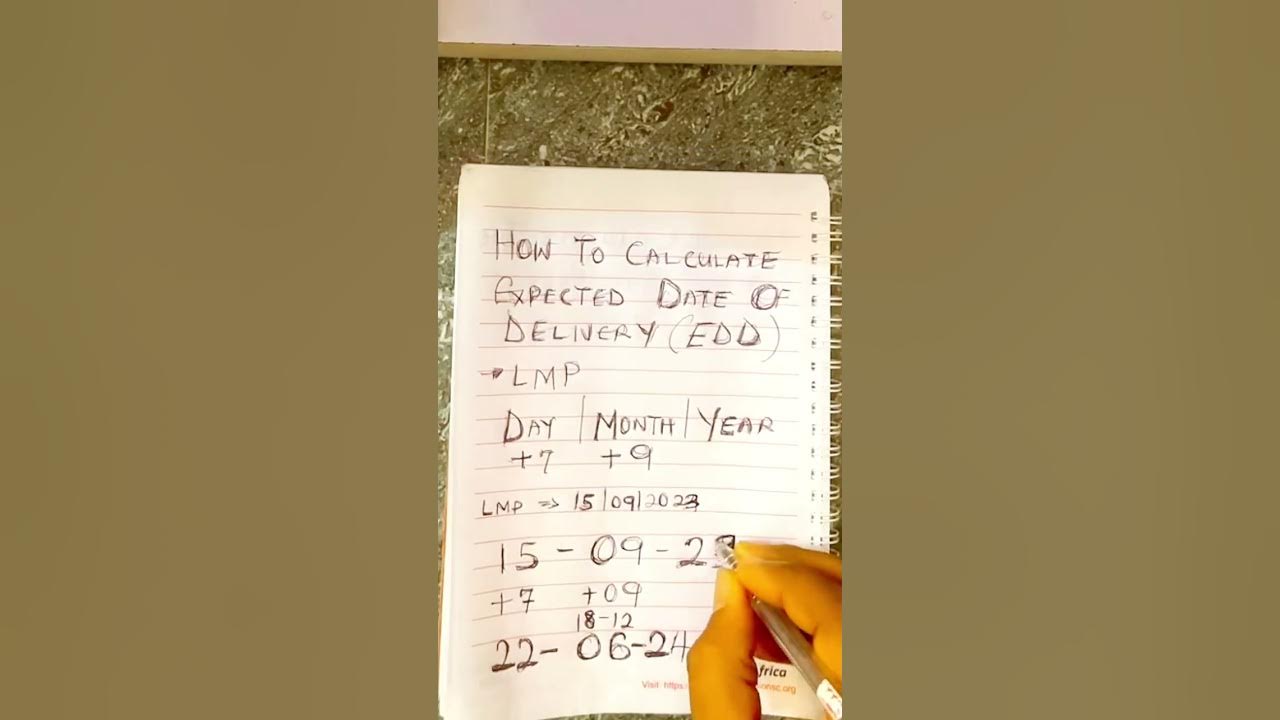 HOW TO CALCULATE
EXPECTED DATE OF
DELIVERY (EDD)
→ LMP
DAY | MONTH | YEAR
+7 +9
LMP => 15/09/2023
15 - 09 - 23
+7 +09
18-12
22- 06-24
frica
Visit: https: onsc.org